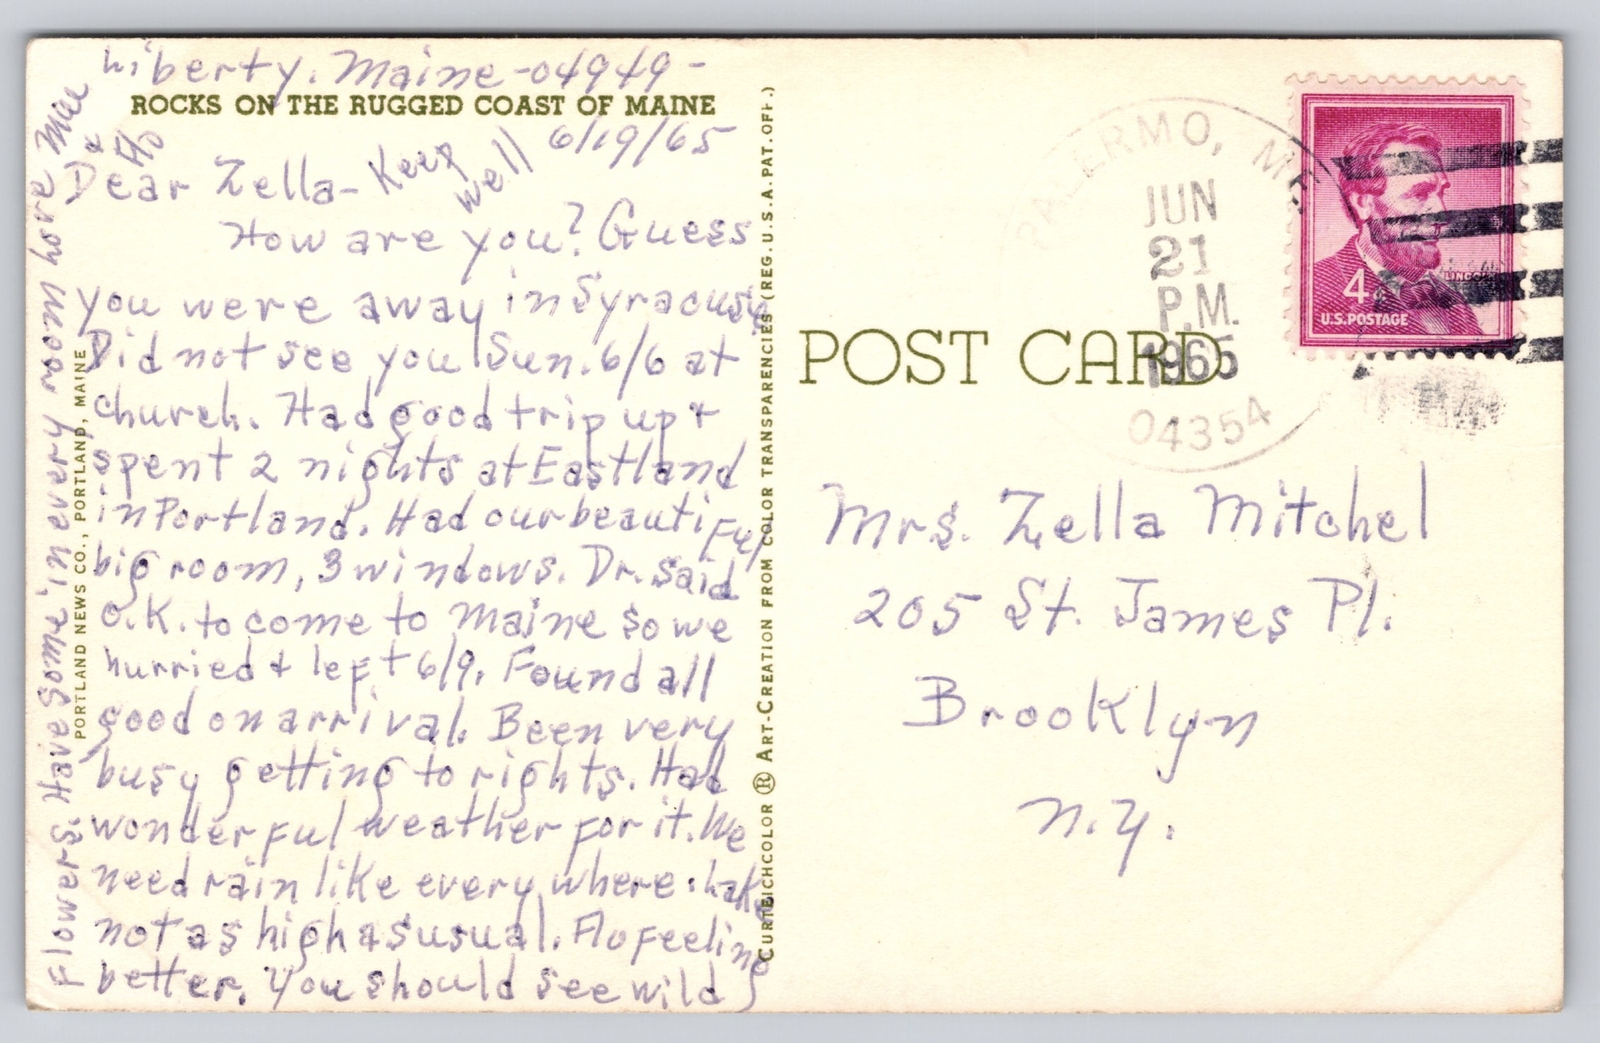 Liberty, Maine -04949-
ROCKS ON THE RUGGED COAST OF MAINE
6/19/65
Dear Zella - Keep
well
How are you? Guess
you were away in Syracuse
Did not see you Sun. 6/6 at
church. Had good trip up &
spent 2 nights at Eastland
in Portland. Had our beautiful
big room, 3 windows. Dr. said
O.K. to come to Maine so we
hurried & left 6/9. Found all
good on arrival. Been very
busy getting to rights. Had
wonderful weather for it. We
need rain like every where. Lake
not as high as usual. Flo feeling
better. You should see wild
Flowers. Have some in every room Love Mae
& Flo
PORTLAND NEWS CO., PORTLAND, MAINE
CURTEICHCOLOR ® ART-CREATION FROM COLOR TRANSPARENCIES (REG. U.S.A. PAT. OFF.)
POST CARD
PALERMO, ME
JUN
21
P.M.
1965
04354
LINCOLN
4¢
U.S. POSTAGE
Mrs. Zella Mitchel
205 St. James Pl.
Brooklyn
N.Y.